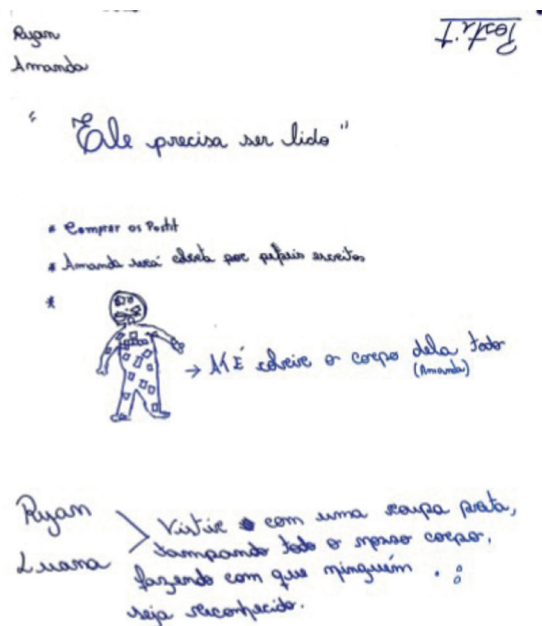 Ryan
Amanda
Postit
"Ele precisa ser lido"
* Comprar os Postit
* Amanda será coberta por papéis escritos
*
→ ATÉ cobrir o corpo dela todo
(Amanda)
Ryan
Luana
Vistir com uma roupa preta,
tampando todo o nosso corpo,
fazendo com que ninguém
seja reconhecido.